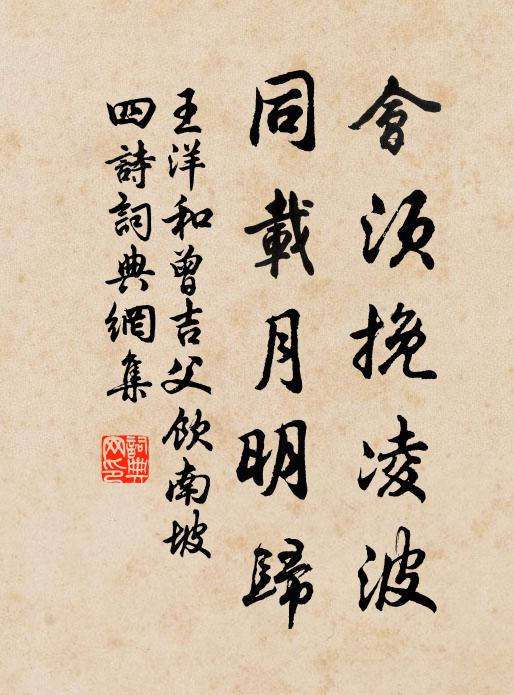 會須挽凌波
同載月明歸
王洋和曾吉父飲南坡
四詩詞典網集
詞典
网印